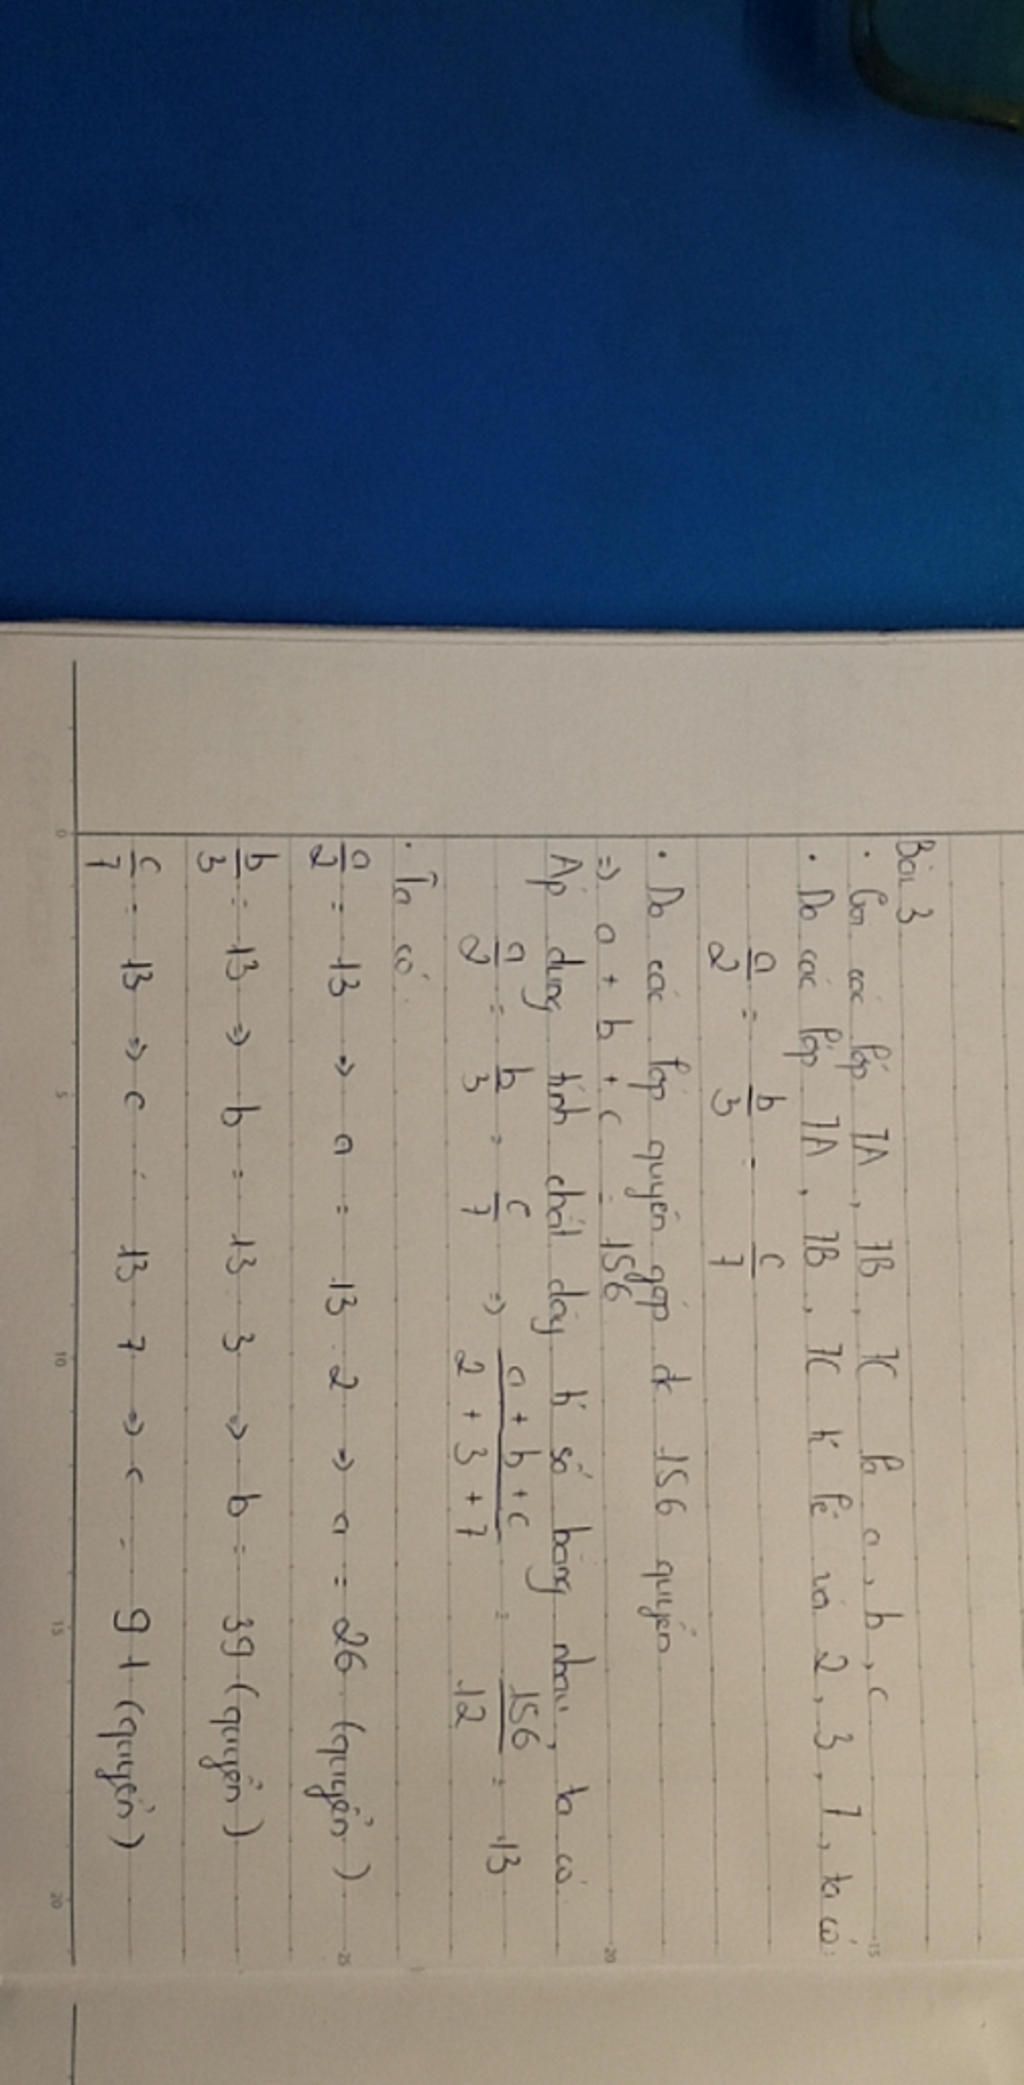 Bài 3
· Gọi các lớp 7A, 7B, 7C là a, b, c
· Do các lớp 7A, 7B, 7C tỉ lệ với 2, 3, 7, ta có:
a/2 = b/3 = c/7
· Do các lớp quyên góp đc 156 quyển
=> a + b + c = 156
Áp dụng tính chất dãy tỉ số bằng nhau, ta có
a/2 = b/3 = c/7 => a + b + c / 2 + 3 + 7 = 156/12 = 13
· Ta có:
a/2 = 13 => a = 13 . 2 => a = 26 (quyển)
b/3 = 13 => b = 13 . 3 => b = 39 (quyển)
c/7 = 13 => c = 13 . 7 => c = 91 (quyển)
0
5
10
15
20
15
20
25